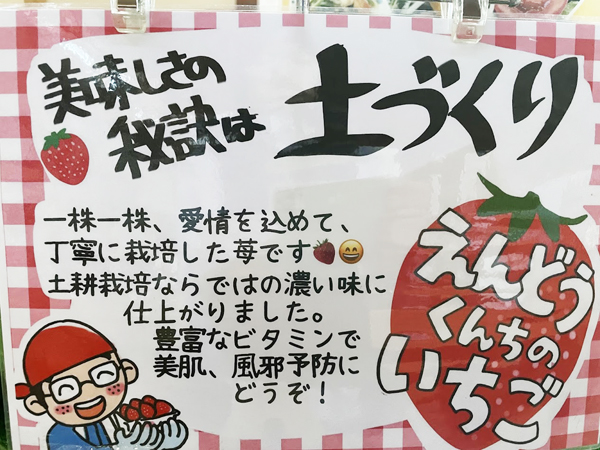 美味しさの
秘訣は
土づくり
一株一株、愛情を込めて、
丁寧に栽培した苺です🍓😄
土耕栽培ならではの濃い味に
仕上がりました。
豊富なビタミンで
美肌、風邪予防に
どうぞ！
えんどう
くんちの
いちご